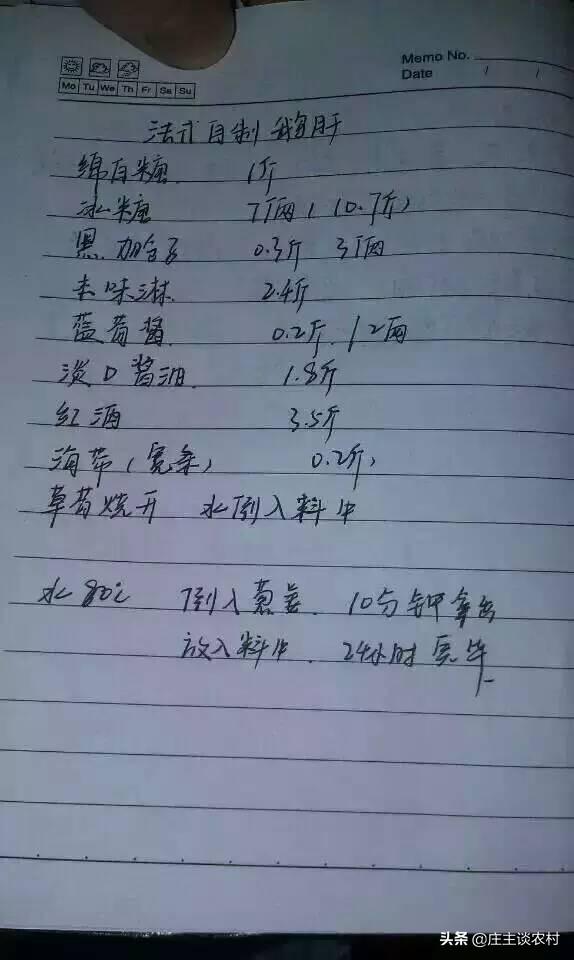 Memo No.
Date / /
Mo Tu We Th Fr Sa Su
法式自制鹅肝
绵白糖 1斤
冰糖 7两 (0.7斤)
黑加仑 0.3斤 3两
味淋 2.4斤
蓝莓酱 0.2斤 / 2两
淡口酱油 1.8斤
红酒 3.5斤
海带(宽条) 0.2斤
草莓烧开 水倒入料中
水80℃ 倒入葱姜 10分钟拿出
放入料中 24小时完毕
头条 @庄主谈农村